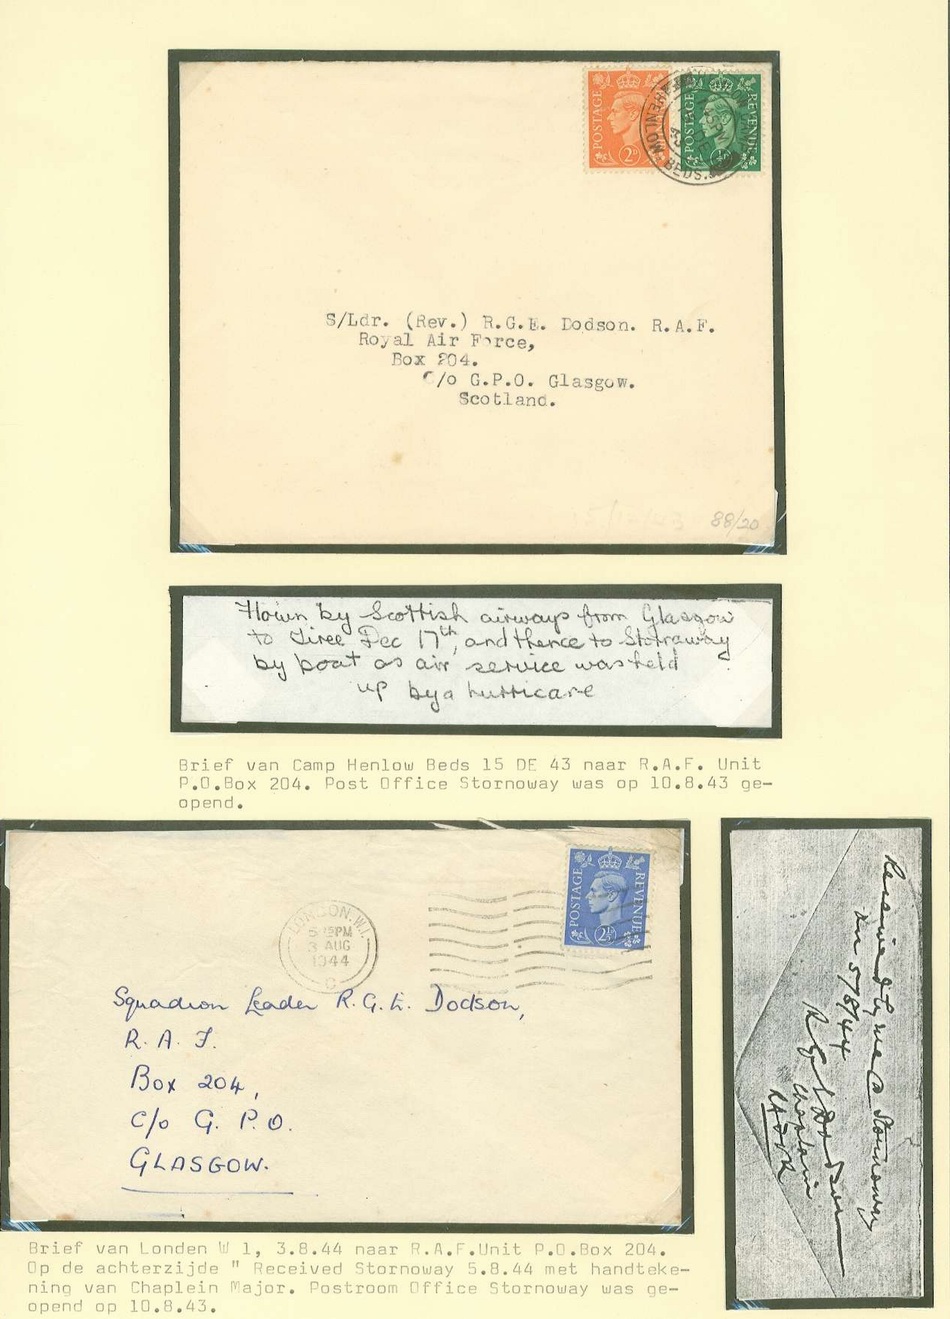 POSTAGE
2D
POSTAGE
REVENUE
BEDS.
S/Ldr. (Rev.) R.G.E. Dodson. R.A.F.
Royal Air Force,
Box 204.
C/o G.P.O. Glasgow.
Scotland.
88/20
Flown by Scottish airways from Glasgow
to Tiree Dec 17th, and thence to Stornaway
by boat as air service was held
up by a hurricare
Brief van Camp Henlow Beds 15 DE 43 naar R.A.F. Unit
P.O.Box 204. Post Office Stornoway was op 10.8.43 ge-
opend.
POSTAGE
REVENUE
2½D
LONDON. W.1.
5 15PM
3 AUG
1944
C
Squadron Leader R. G. E. Dodson,
R. A. F.
Box 204,
C/o G. P. O.
GLASGOW.
Received by me @ Stornoway
5/8/44
R G E Dodson
Chaplain
Brief van Londen W 1, 3.8.44 naar R.A.F.Unit P.O.Box 204.
Op de achterzijde " Received Stornoway 5.8.44 met handteke-
ning van Chaplein Major. Postroom Office Stornoway was ge-
opend op 10.8.43.